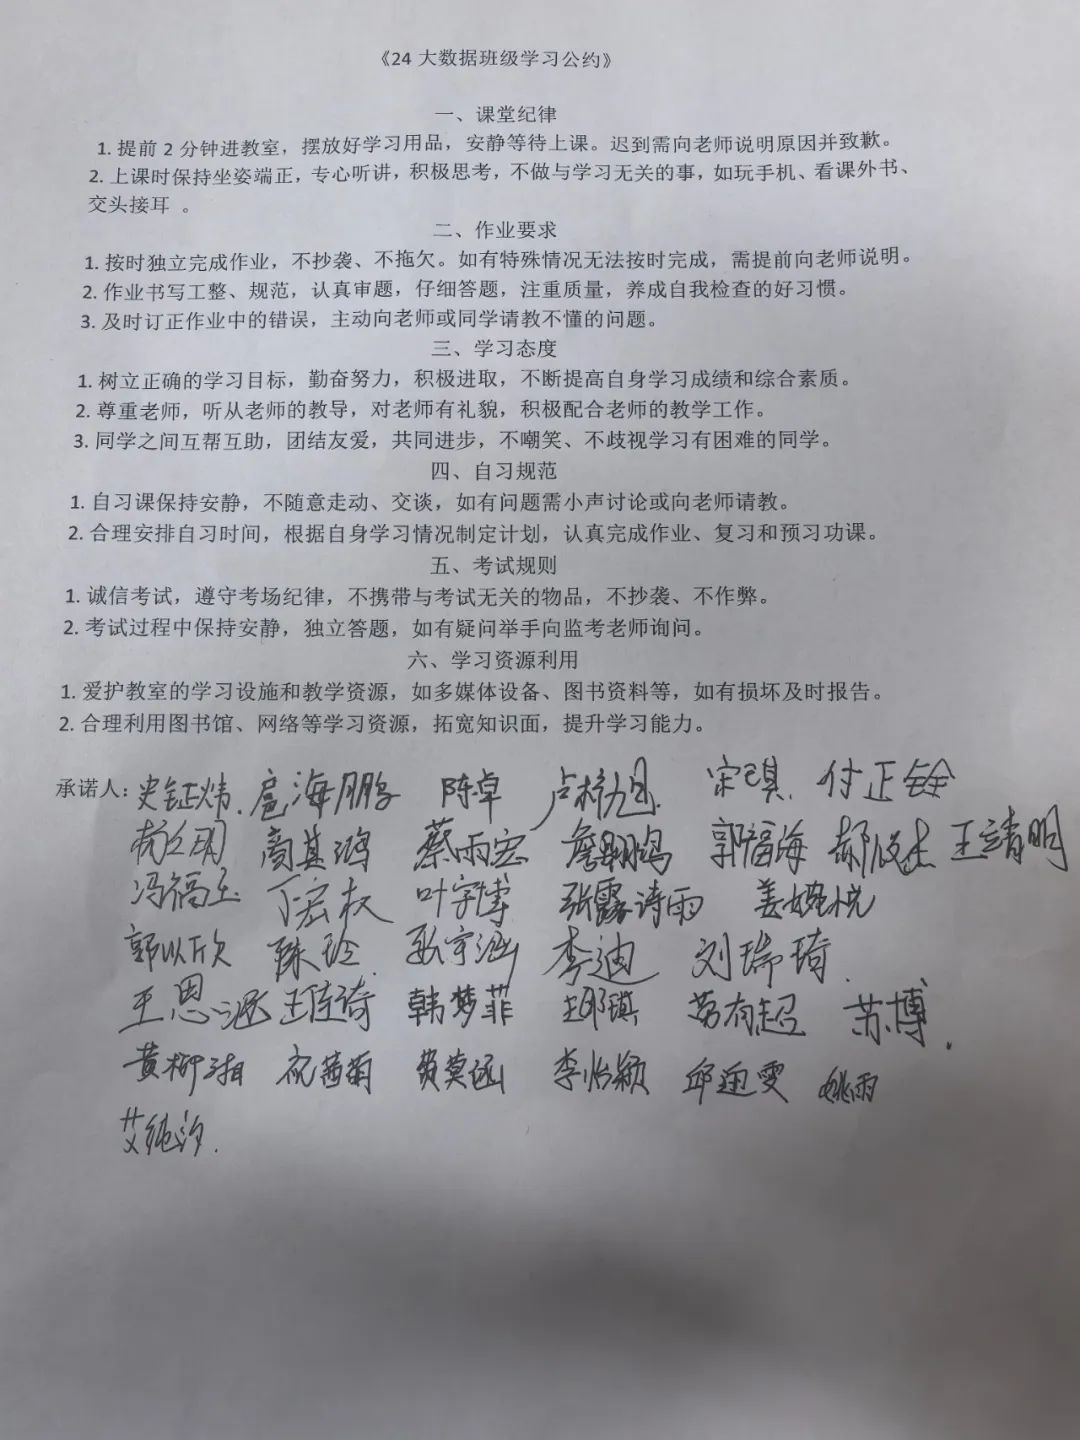 《24 大数据班级学习公约》
一、课堂纪律
1. 提前 2 分钟进教室，摆放好学习用品，安静等待上课。迟到需向老师说明原因并致歉。
2. 上课时保持坐姿端正，专心听讲，积极思考，不做与学习无关的事，如玩手机、看课外书、
交头接耳 。
二、作业要求
1. 按时独立完成作业，不抄袭、不拖欠。如有特殊情况无法按时完成，需提前向老师说明。
2. 作业书写工整、规范，认真审题，仔细答题，注重质量，养成自我检查的好习惯。
3. 及时订正作业中的错误，主动向老师或同学请教不懂的问题。
三、学习态度
1. 树立正确的学习目标，勤奋努力，积极进取，不断提高自身学习成绩和综合素质。
2. 尊重老师，听从老师的教导，对老师有礼貌，积极配合老师的教学工作。
3. 同学之间互帮互助，团结友爱，共同进步，不嘲笑、不歧视学习有困难的同学。
四、自习规范
1. 自习课保持安静，不随意走动、交谈，如有问题需小声讨论或向老师请教。
2. 合理安排自习时间，根据自身学习情况制定计划，认真完成作业、复习和预习功课。
五、考试规则
1. 诚信考试，遵守考场纪律，不携带与考试无关的物品，不抄袭、不作弊。
2. 考试过程中保持安静，独立答题，如有疑问举手向监考老师询问。
六、学习资源利用
1. 爱护教室的学习设施和教学资源，如多媒体设备、图书资料等，如有损坏及时报告。
2. 合理利用图书馆、网络等学习资源，拓宽知识面，提升学习能力。
承诺人：史钲炜. 扈海鹏 陈卓 宋琪. 付正铨
高其鸿 蔡雨宏 詹翱鸿 郭福海 王靖明
冯福玉 丁宏权 叶宇博 张露诗雨 姜婉悦
郭以欣 陈玲 耿宇涵 李迪 刘瑞琦.
王佳琦 韩梦菲 苏博.
黄柳湘 祝茜菊 黄莫涵 李怡颖 邱迦雯 姚雨
艾纯汐.